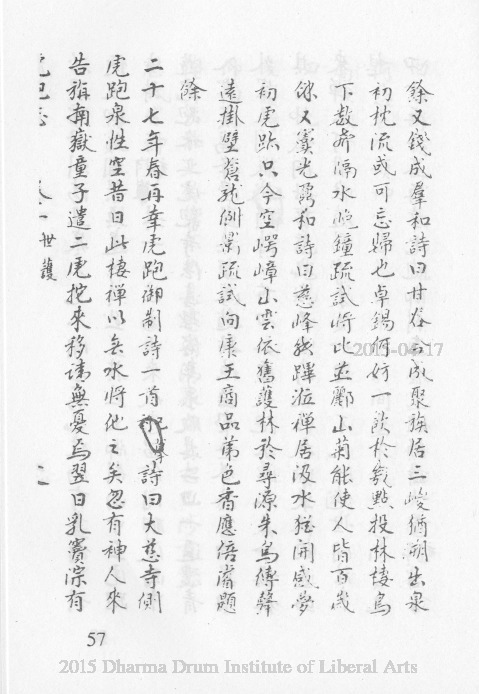 餘又錢成羣和詩曰甘谷 聚族居三峻猶朔出泉
初枕流或可忘歸也卓錫何妨一飲於幾點投林棲烏
下數聲隔水晚鐘疏試將比並酈山菊能使人皆百歲
餘又竇光鼐和詩曰慈峰 蹕涖禪居汲水猶開感夢
初虎跡只今空崿嶂山雲依舊護林於尋源朱烏傅聲
遠掛壁蒼龍倒影疏試向康王商品第色香應倍舊題
餘
二十七年春再幸虎跑御制詩一首 詩曰大慈寺側
虎跑泉性空昔日此棲禪以無水將他之矣忽有神人來
告稱南嶽童子遣二虎挖來移請無憂焉翌日乳竇淙有
虎跑 一 世護 二
57
2015-04-17
2015 Dharma Drum Institute of Liberal Arts